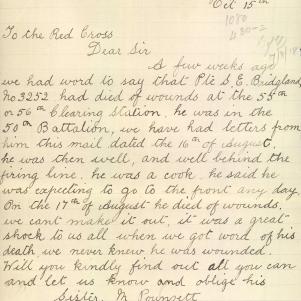 Oct 15th
1080
To the Red Cross
Dear Sir
A few weeks ago
we had word to say that Pte S. E. Bridgland
No 3252 had died of wounds at the 55th
or 56th Clearing Station. he was in the
50th Battalion, we have had letters from
him this mail dated the 16th of August.
he was then well, and well behind the
firing line. he was a cook. he said he
was expecting to go to the front any day
On the 17th of August he died of wounds.
we cant make it out, it was a great
shock to us all when we got word of his
death we never knew he was wounded.
Will you kindly find out all you can
and let us know and oblige his
Sister M Pounsett